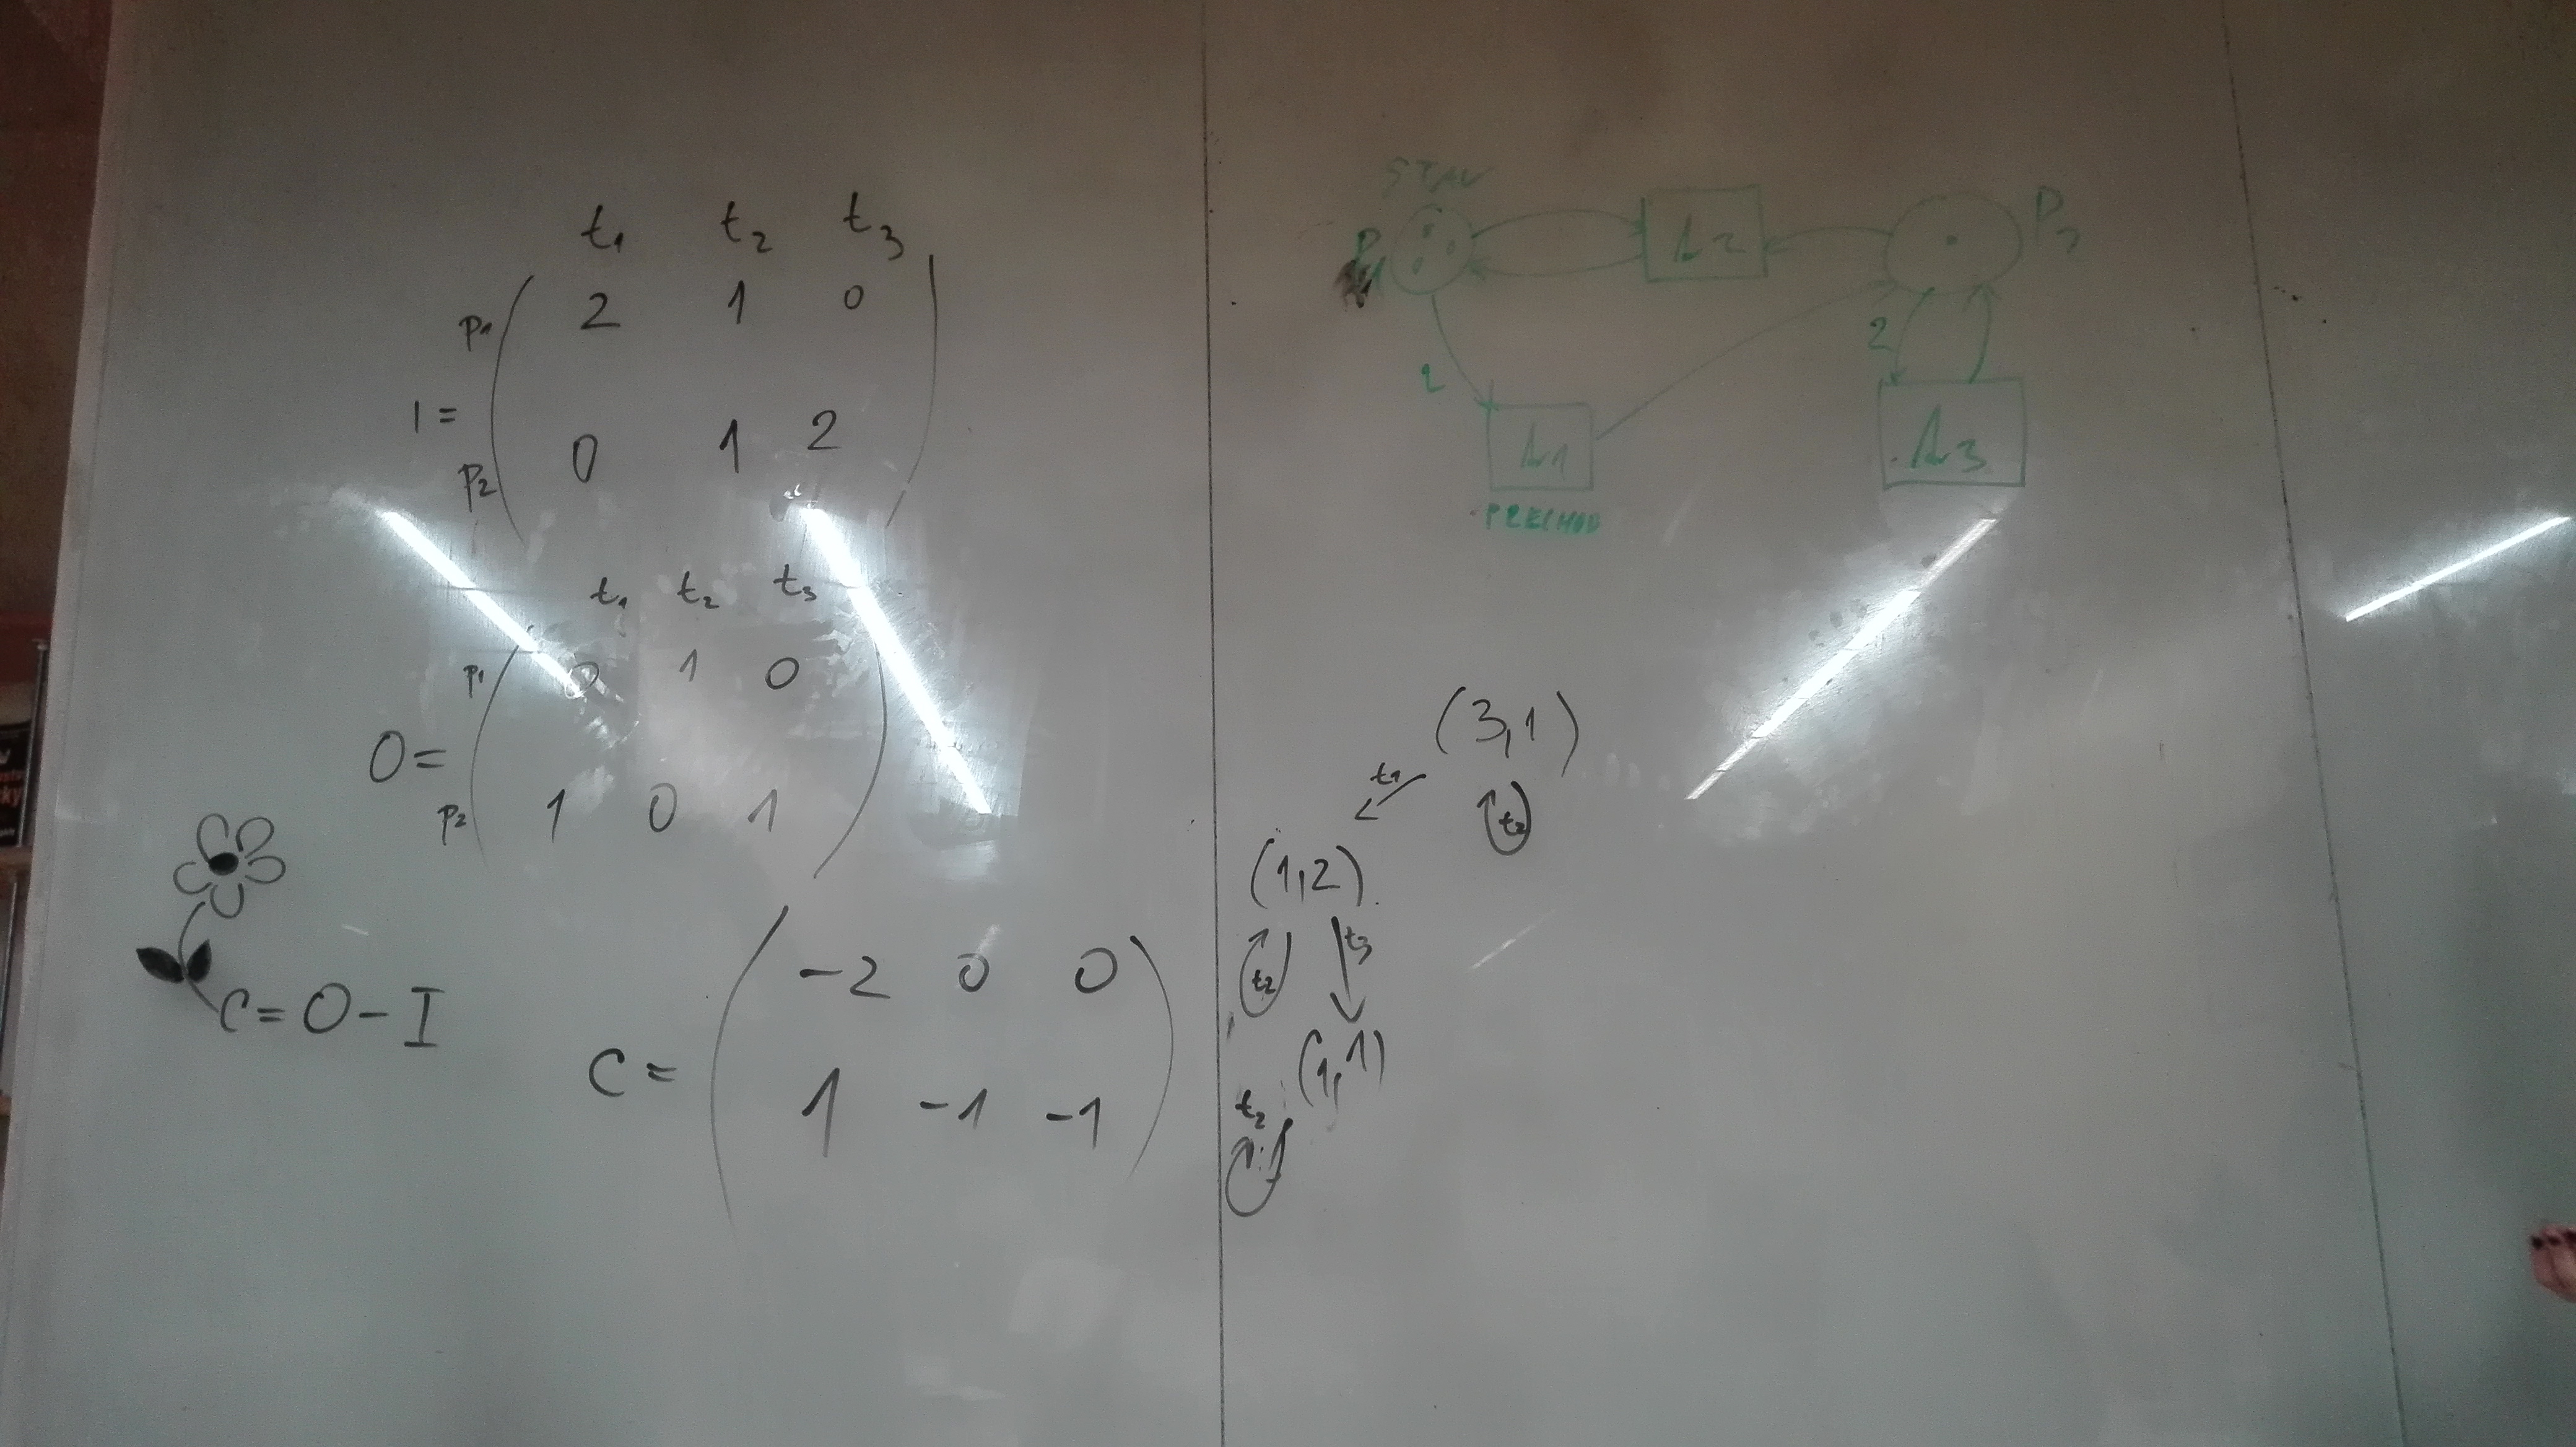 t₁ t₂ t₃
p₁ 2 1 0
I =
p₂ 0 1 2
t₁ t₂ t₃
p₁ 0 1 0
O =
p₂ 1 0 1
C = O - I
-2 0 0
C =
1 -1 -1
STAV
P₁ t₂ P₂
2 2
t₁ t₃
PRECHOD
(3,1)
t₁ t₂
(1,2)
t₂ t₃
(1,1)
t₂